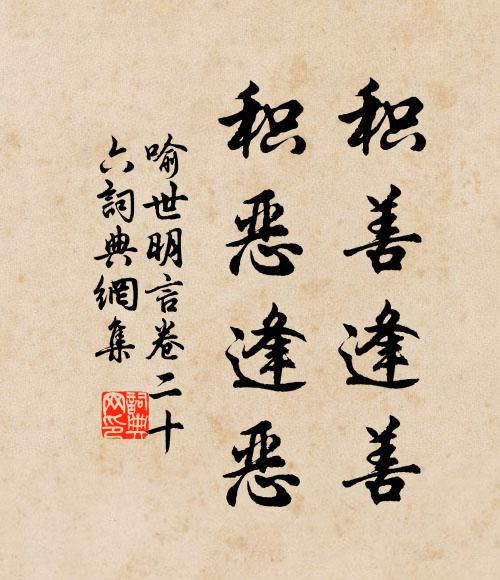 积善逢善
积恶逢恶
喻世明言卷二十
六詞典網集
詞典
网印